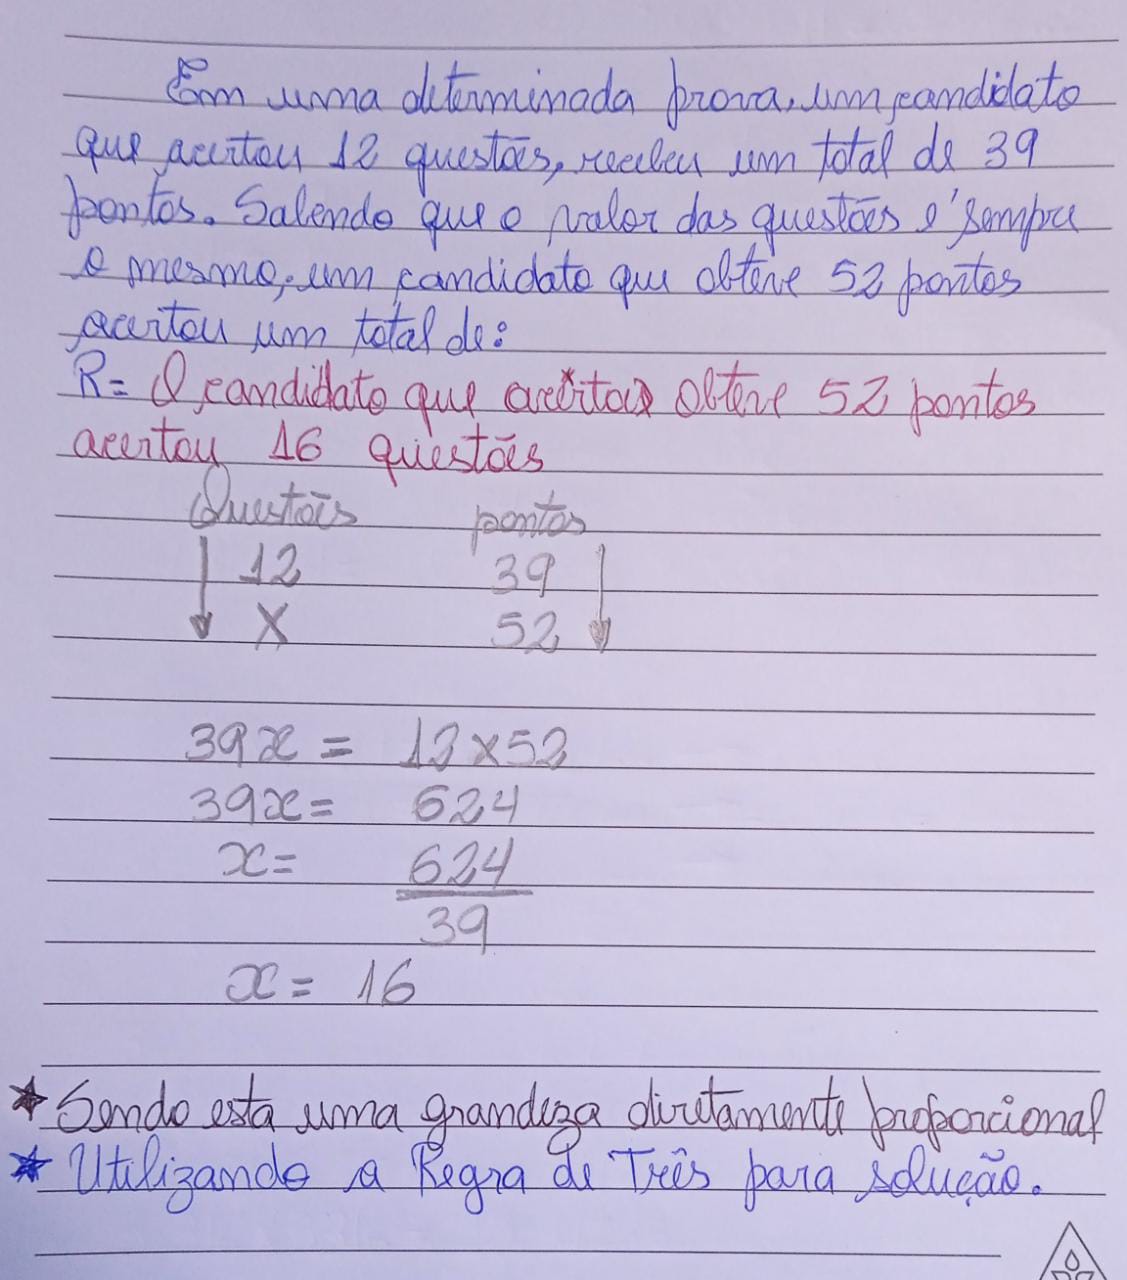 Em uma determinada prova, um candidato
que acertou 12 questões, recebeu um total de 39
pontos. Sabendo que o valor das questões é sempre
o mesmo, um candidato que obteve 52 pontos
acertou um total de:
R= O candidato que acertou obteve 52 pontos
acertou 16 questões
Questões pontos
12 39
X 52
39x = 12x52
39x= 624
x= 624
39
x= 16
★ Sendo esta uma grandeza diretamente proporcional
★ Utilizando a Regra de Três para solução.